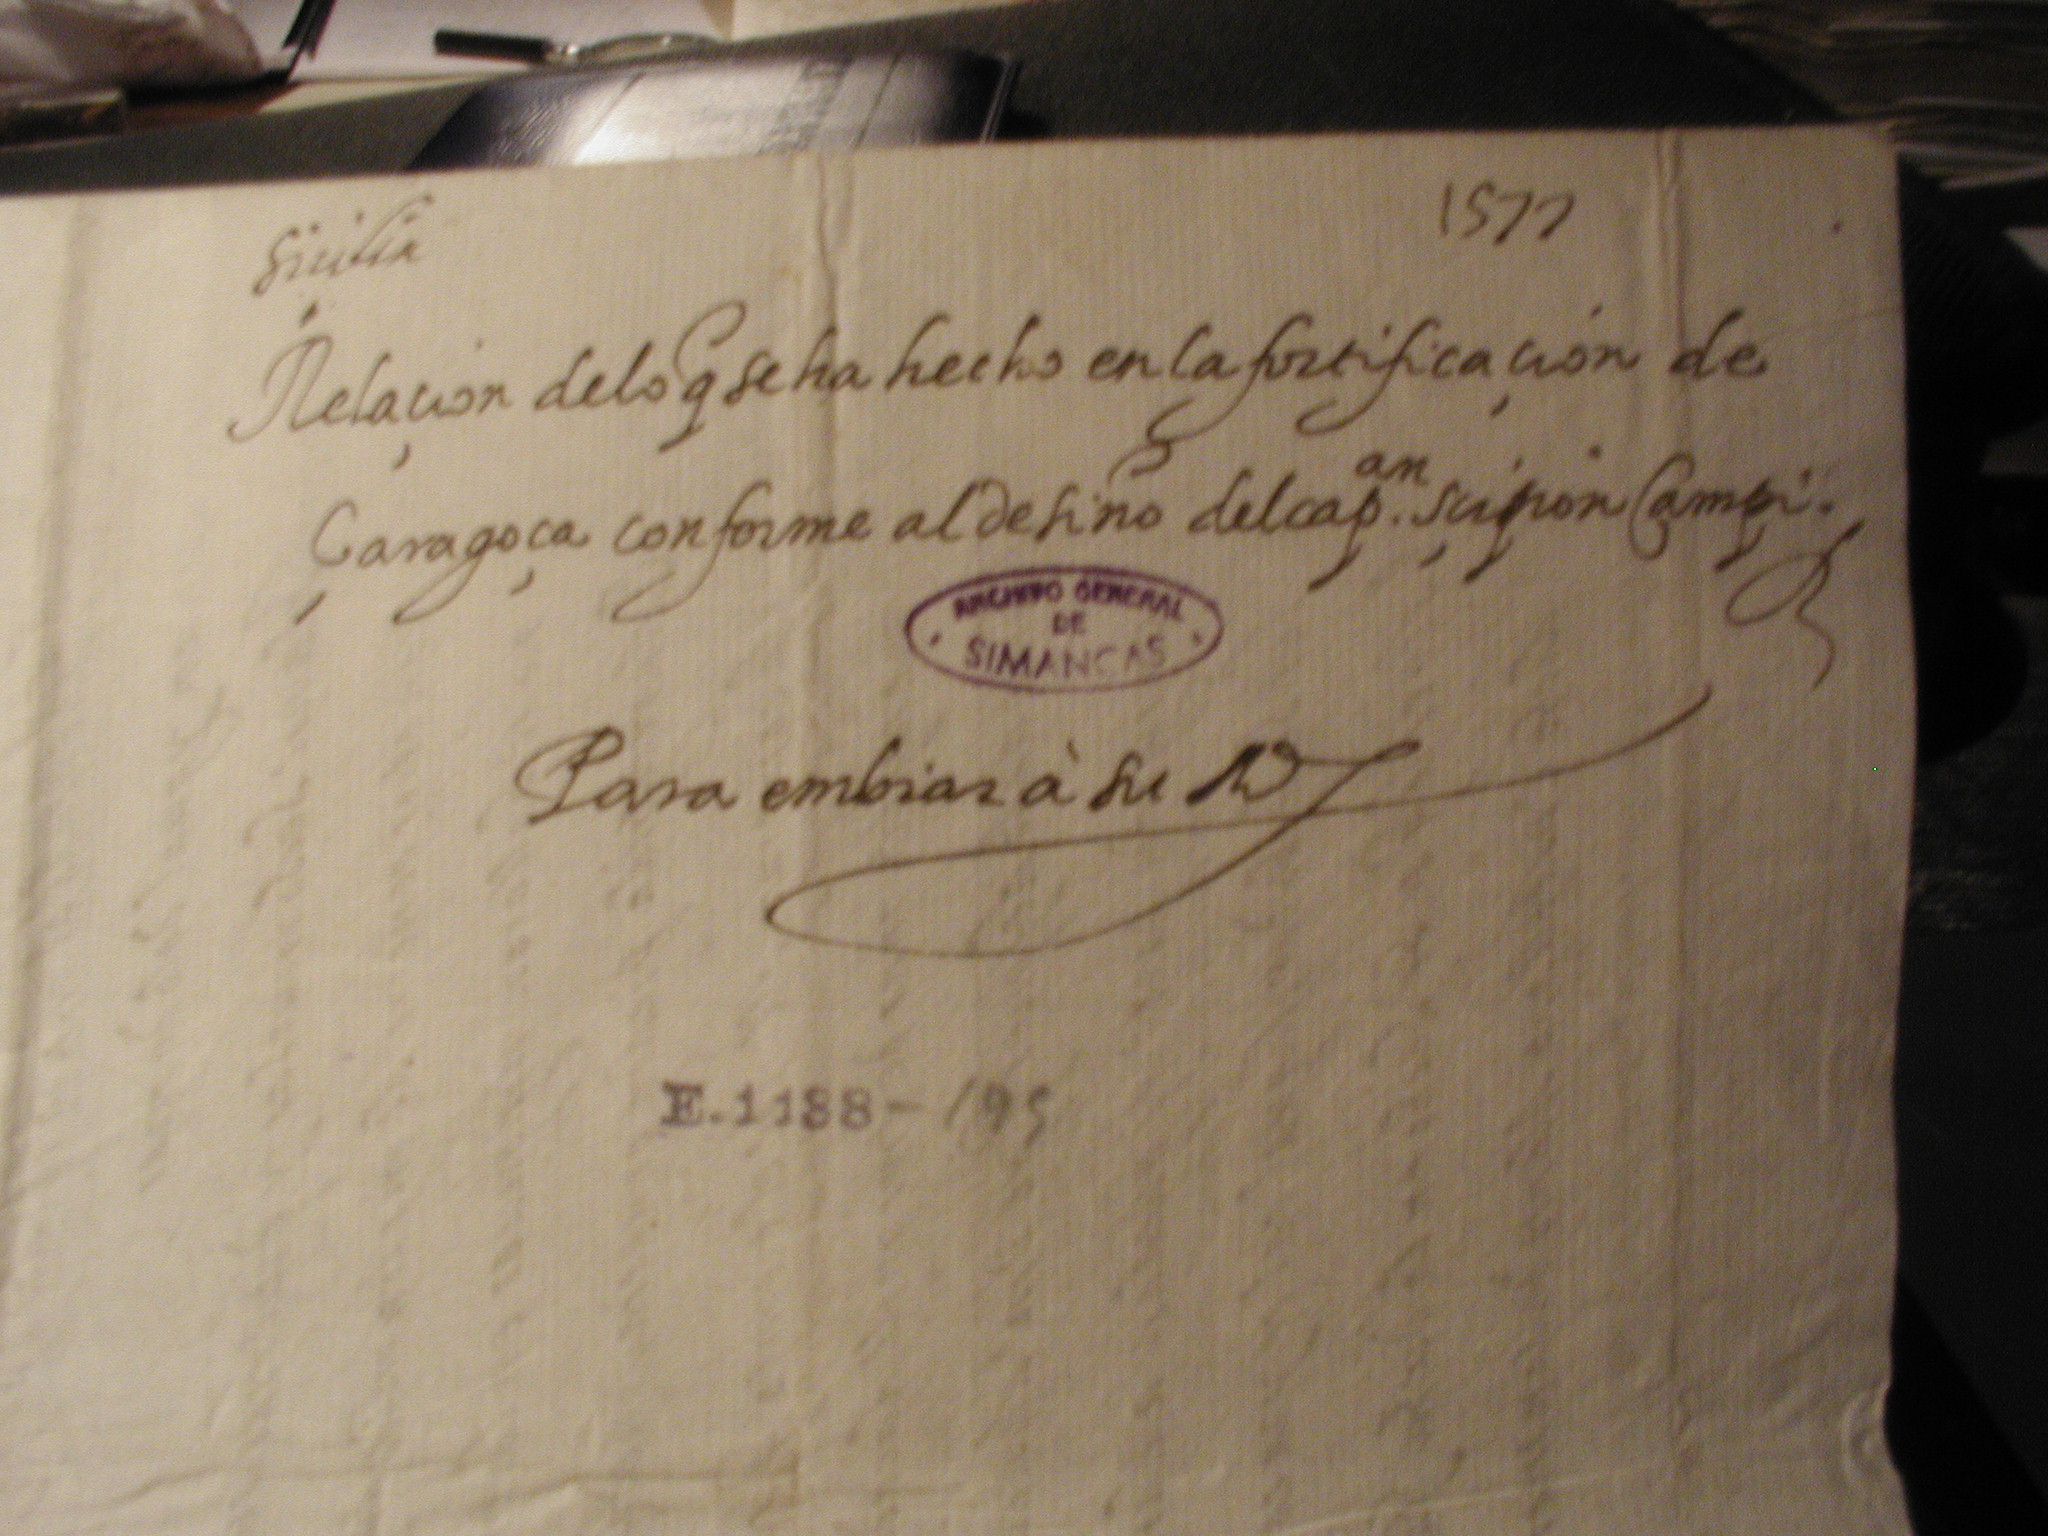 Sicilia
1577
Relaçion delo q̃ se ha hecho en la fortificaçion de
Çaragoça conforme al desiño del cap.an Scipion Campi.
ARCHIVO GENERAL
DE
SIMANCAS
Para embiar à su Md
E.1188-195